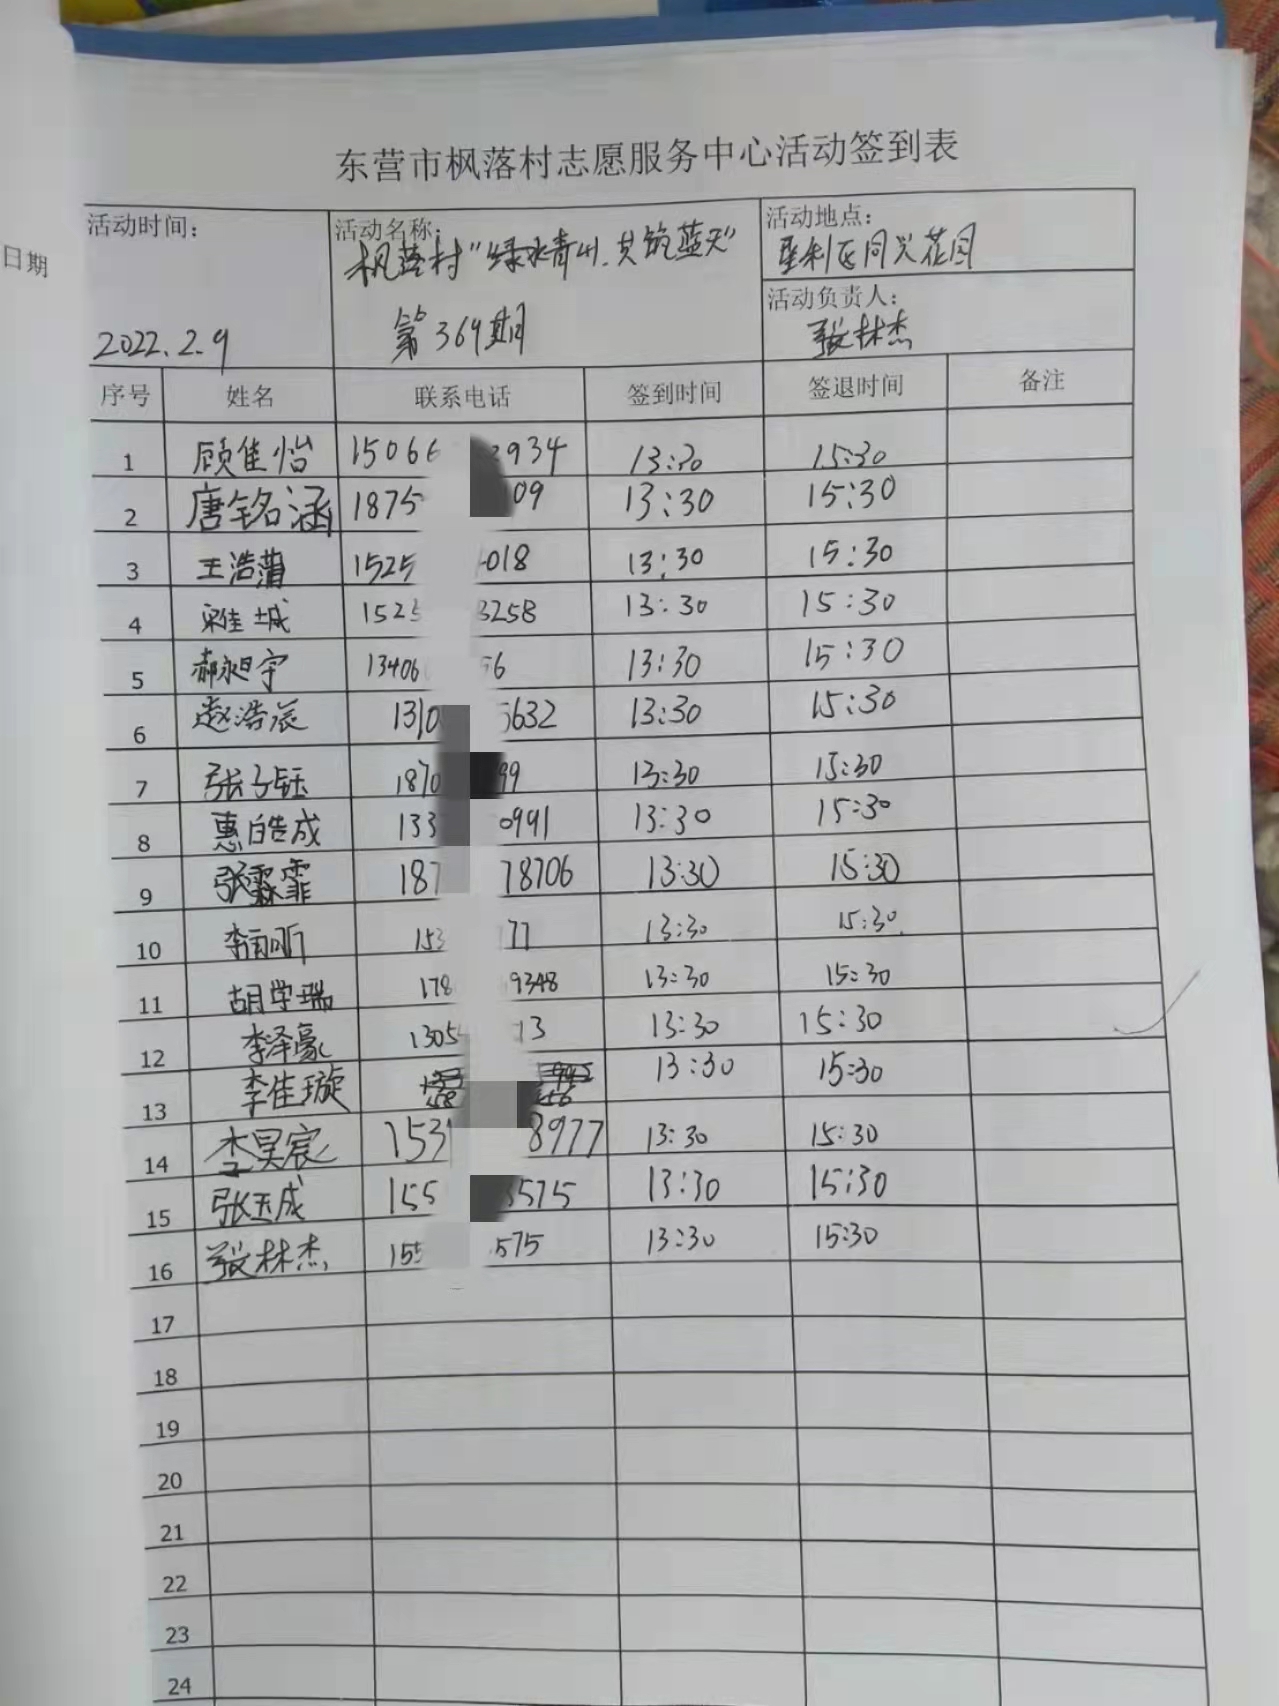 东营市枫落村志愿服务中心活动签到表
日期
活动时间： 2022.2.9
活动名称： 枫落村"绿水青山.共筑蓝天" 第369期
活动地点： 垦利区同兴花园
活动负责人： 张林杰
序号 姓名 联系电话 签到时间 签退时间 备注
1 顾佳怡 15066 934 13:30 15:30
2 唐铭涵 1875 09 13:30 15:30
3 王浩 1525 018 13:30 15:30
4 城 1525 3258 13:30 15:30
5 郝昶宇 13406 56 13:30 15:30
6 赵浩辰 1310 5632 13:30 15:30
7 张子钰 1870 99 13:30 15:30
8 惠皓成 133 0991 13:30 15:30
9 张霖霏 187 78706 13:30 15:30
10 李雨昕 153 77 13:30 15:30
11 胡学瑞 178 9348 13:30 15:30
12 李泽豪 1305 13 13:30 15:30
13 李佳璇 158 56 13:30 15:30
14 李昊宸 153 8977 13:30 15:30
15 张玉成 155 3575 13:30 15:30
16 张林杰 155 575 13:30 15:30
17
18
19
20
21
22
23
24